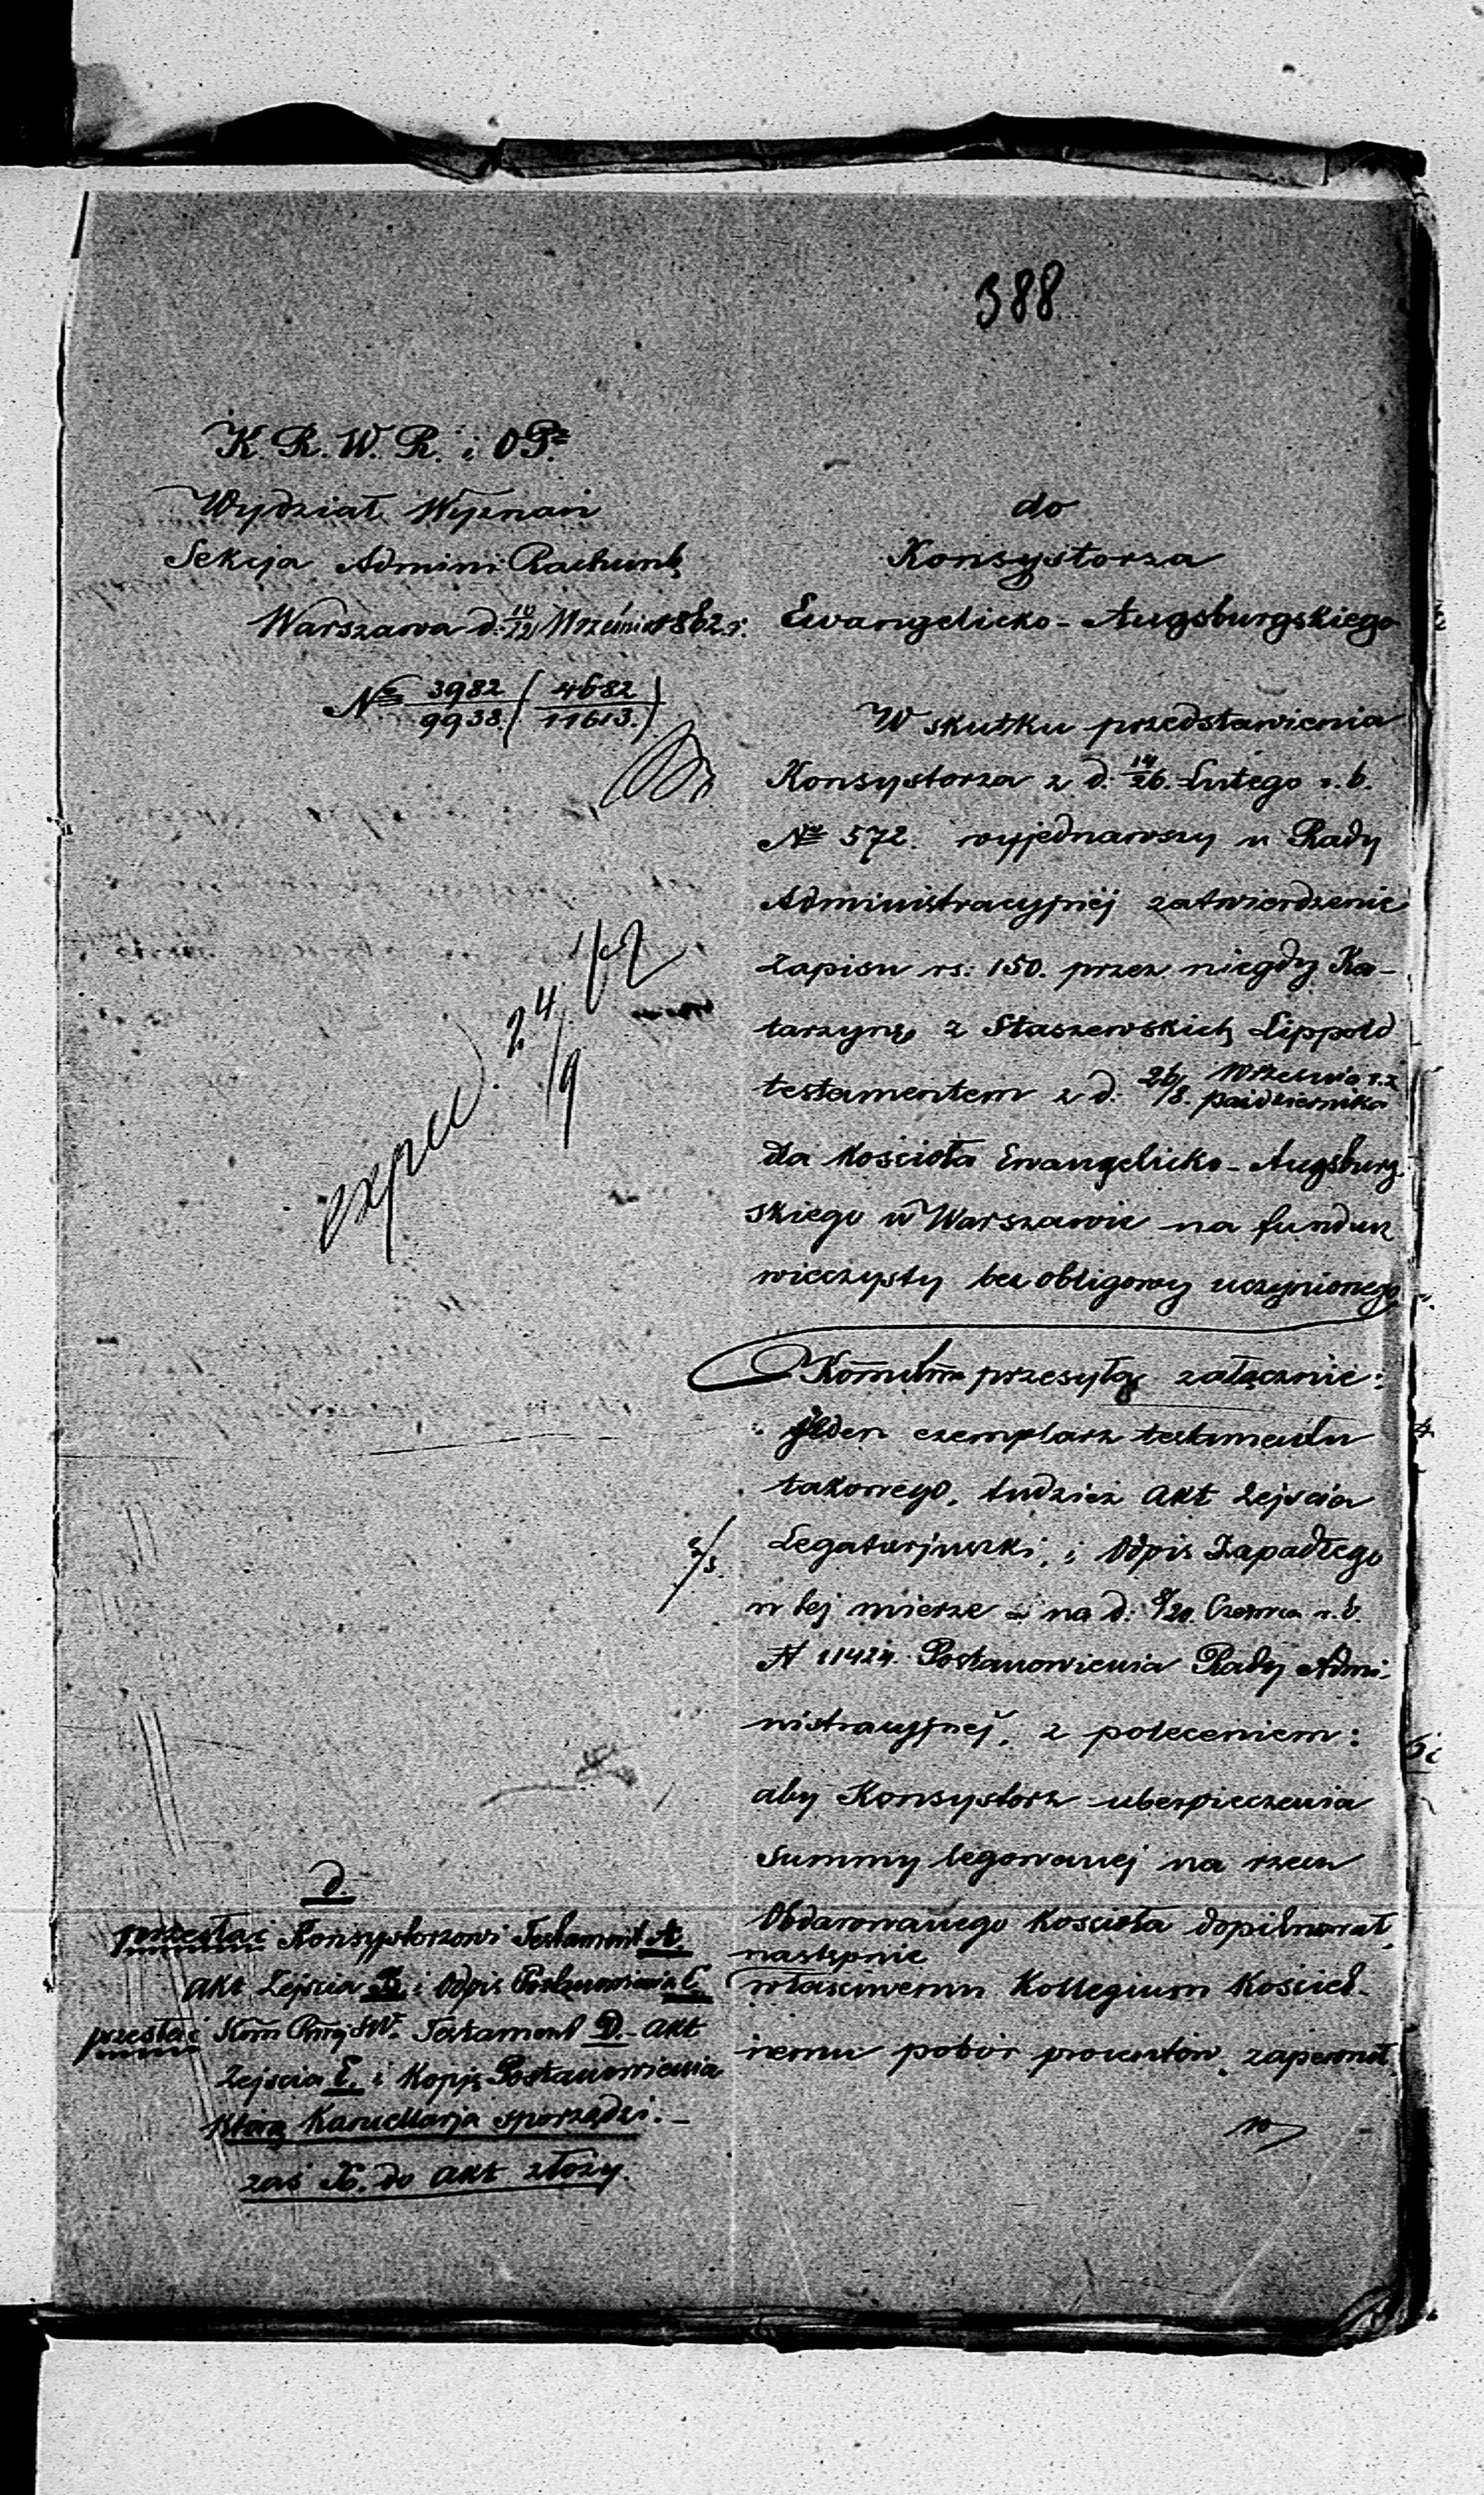 388
K. R. W. R. i O P.
Wydział Wyznań
Sekcja Admini Rachunk
Warszawa d. 10/22 Wrześnie 1862 r.
№ 3982/9938. (4682/11613.)
exped. 24/9 62
d.
przesłać Konsystorzowi Testament A.
Akt Zejścia B. i Odpis Postanowienia C.
przesłać Kom Testament D. Akt
Zejścia E. i Kopję Postanowienia
którą Kancellarja sporządzi. –
zaś do akt złoży.
do
Konsystorza
Ewangelicko-Augsburgskiego
W skutku przedstawienia
Konsystorza z d. 14/26. Lutego r. b.
№ 572. wyjednawszy u Rady
Administracyjnéj zatwierdzenie
zapisu rs: 150. przez niegdy Ka-
tarzynę z Staszewskich Lippold
testamentem z d. 26/8. Września r.z. października
dla Kościoła Ewangelicko-Augsburg
skiego w Warszawie na fundusz
wieczysty bez obligowy uczynionego
przesyła załącznie:
jeden exemplarz testamentu
takowego, tudzież Akt Zejścia
Legatarjuszki, i Odpis Zapadłego
w tej mierze na d: 8/20. Czerwca r. b.
№ 11424. Postanowienia Rady Admi-
nistracyjnej, z poleceniem:
aby Konsystorz ubezpieczenia
Summy legowanej na rzecz
Obdarowanego Kościoła dopilnował,
następnie
właściwemu Kollegium Kościel-
nemu pobór procentów zapewnił.